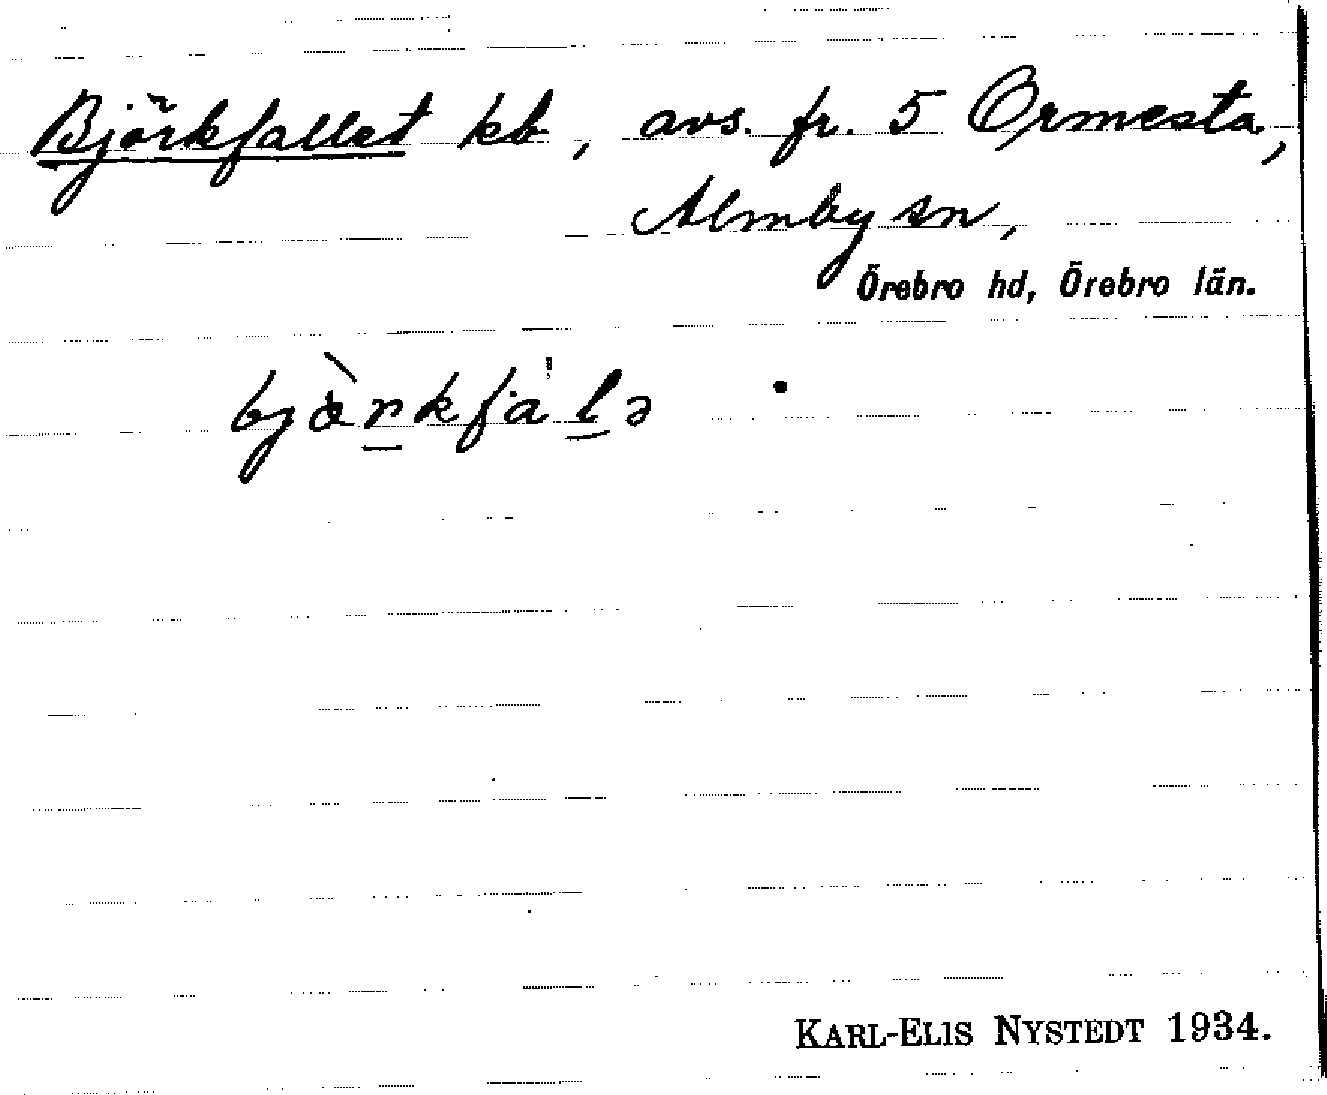 Björkfallet kb, avs. fr. 5 Ormesta,
Almby sn,
Örebro hd, Örebro län.
bjò̈rkfa'lə
KARL-ELIS NYSTEDT 1934.